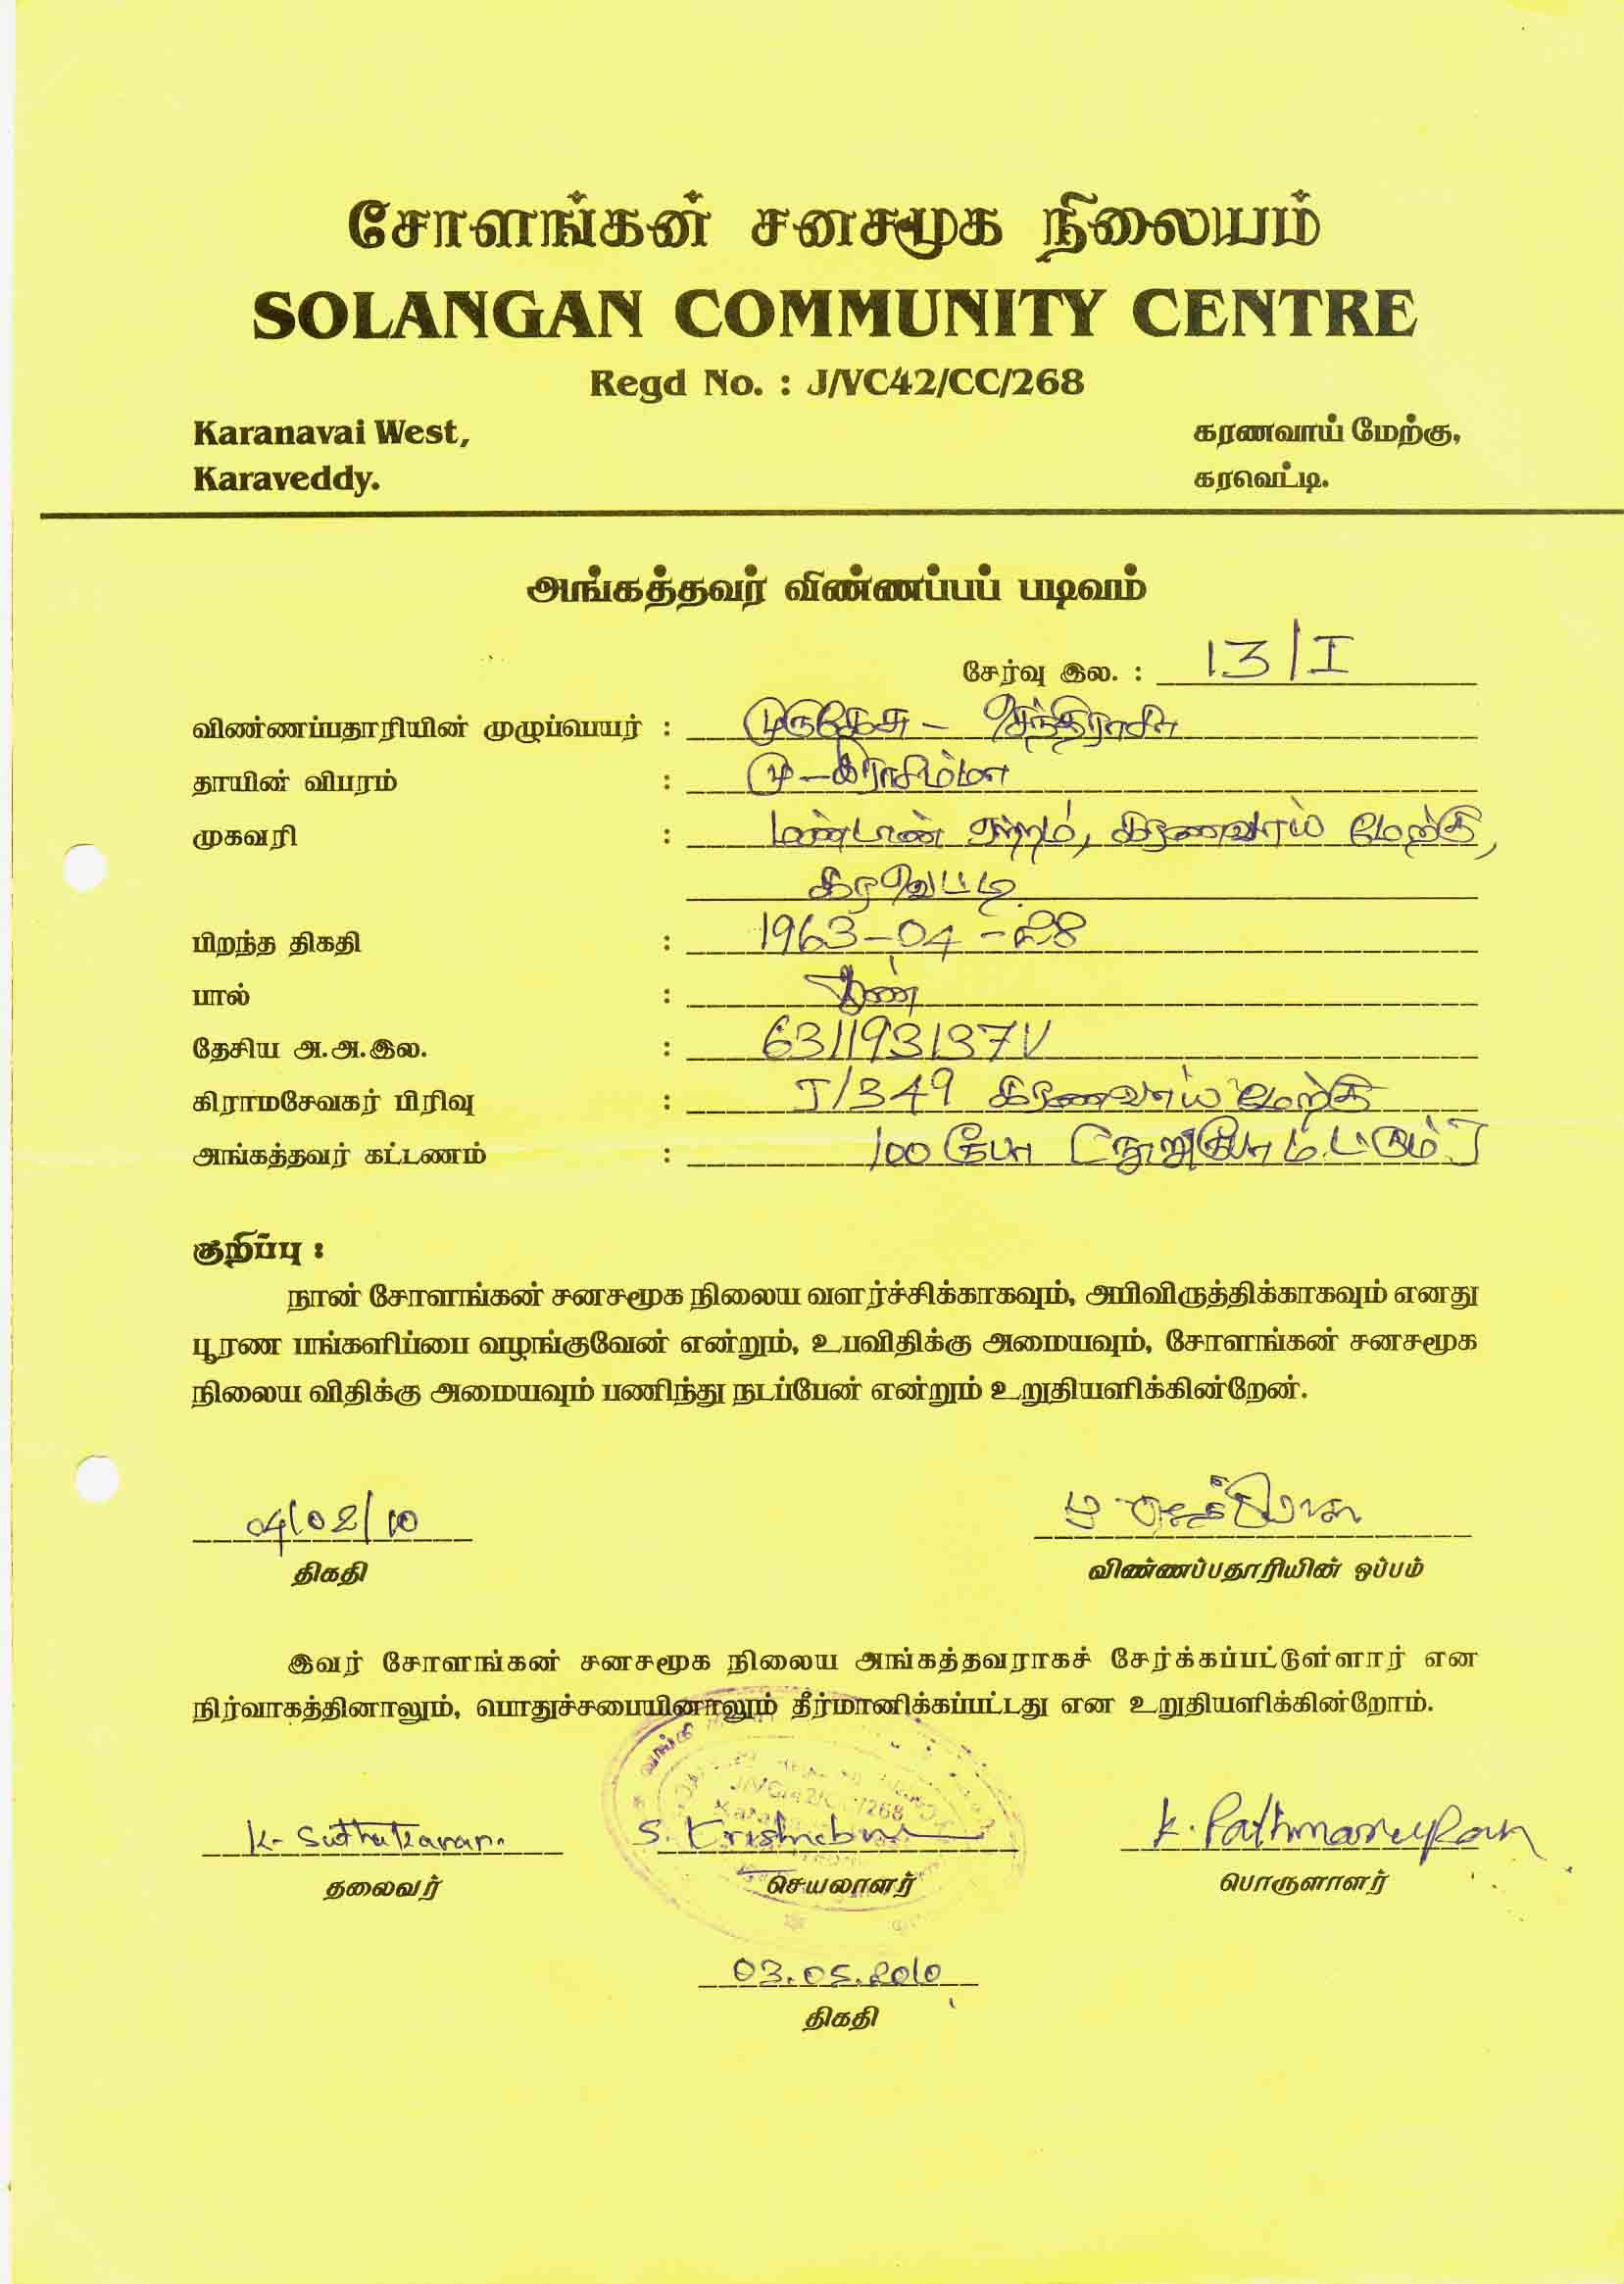 சோளங்கன் சனசமூக நிலையம்
SOLANGAN COMMUNITY CENTRE
Regd No. : J/VC42/CC/268
Karanavai West, கரணவாய் மேற்கு,
Karaveddy. கரவெட்டி.
அங்கத்தவர் விண்ணப்பப் படிவம்
சேர்வு இல. : 13/I
விண்ணப்பதாரியின் முழுப்பெயர் : முருகேசு -
தாயின் விபரம் : மு - இராசம்மா
முகவரி : மண்டாண் கரணவாய் மேற்கு,
கரவெட்டி.
பிறந்த திகதி : 1963-04-28
பால் : ஆண்
தேசிய அ.அ.இல. : 631193137V
கிராமசேவகர் பிரிவு : J/349 கரணவாய் மேற்கு
அங்கத்தவர் கட்டணம் : 100 ரூபா [நூறு ரூபா மட்டும்]
குறிப்பு :
நான் சோளங்கன் சனசமூக நிலைய வளர்ச்சிக்காகவும், அபிவிருத்திக்காகவும் எனது
பூரண பங்களிப்பை வழங்குவேன் என்றும், உபவிதிக்கு அமையவும், சோளங்கன் சனசமூக
நிலைய விதிக்கு அமையவும் பணிந்து நடப்பேன் என்றும் உறுதியளிக்கின்றேன்.
04/02/10
திகதி விண்ணப்பதாரியின் ஒப்பம்
இவர் சோளங்கன் சனசமூக நிலைய அங்கத்தவராகச் சேர்க்கப்பட்டுள்ளார் என
நிர்வாகத்தினாலும், பொதுச்சபையினாலும் தீர்மானிக்கப்பட்டது என உறுதியளிக்கின்றோம்.
K. Suthakaran
தலைவர் செயலாளர் பொருளாளர்
03.05.2010
திகதி